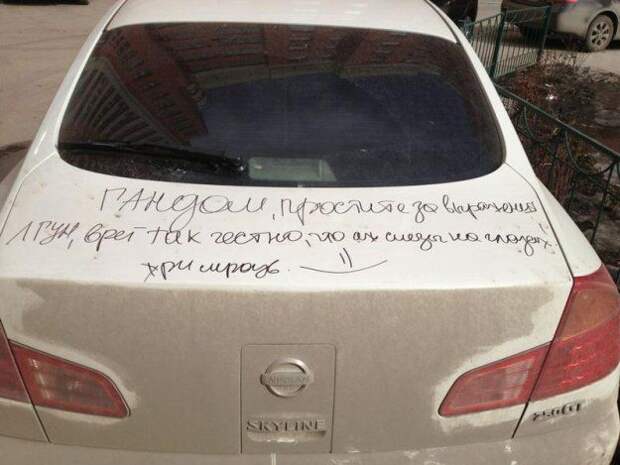 ГАНДОШ, простите за выражения
ЛГУН, врет так честно, что аж слезы на глазах
мразь. ))
NISSAN
SKYLINE
250GT